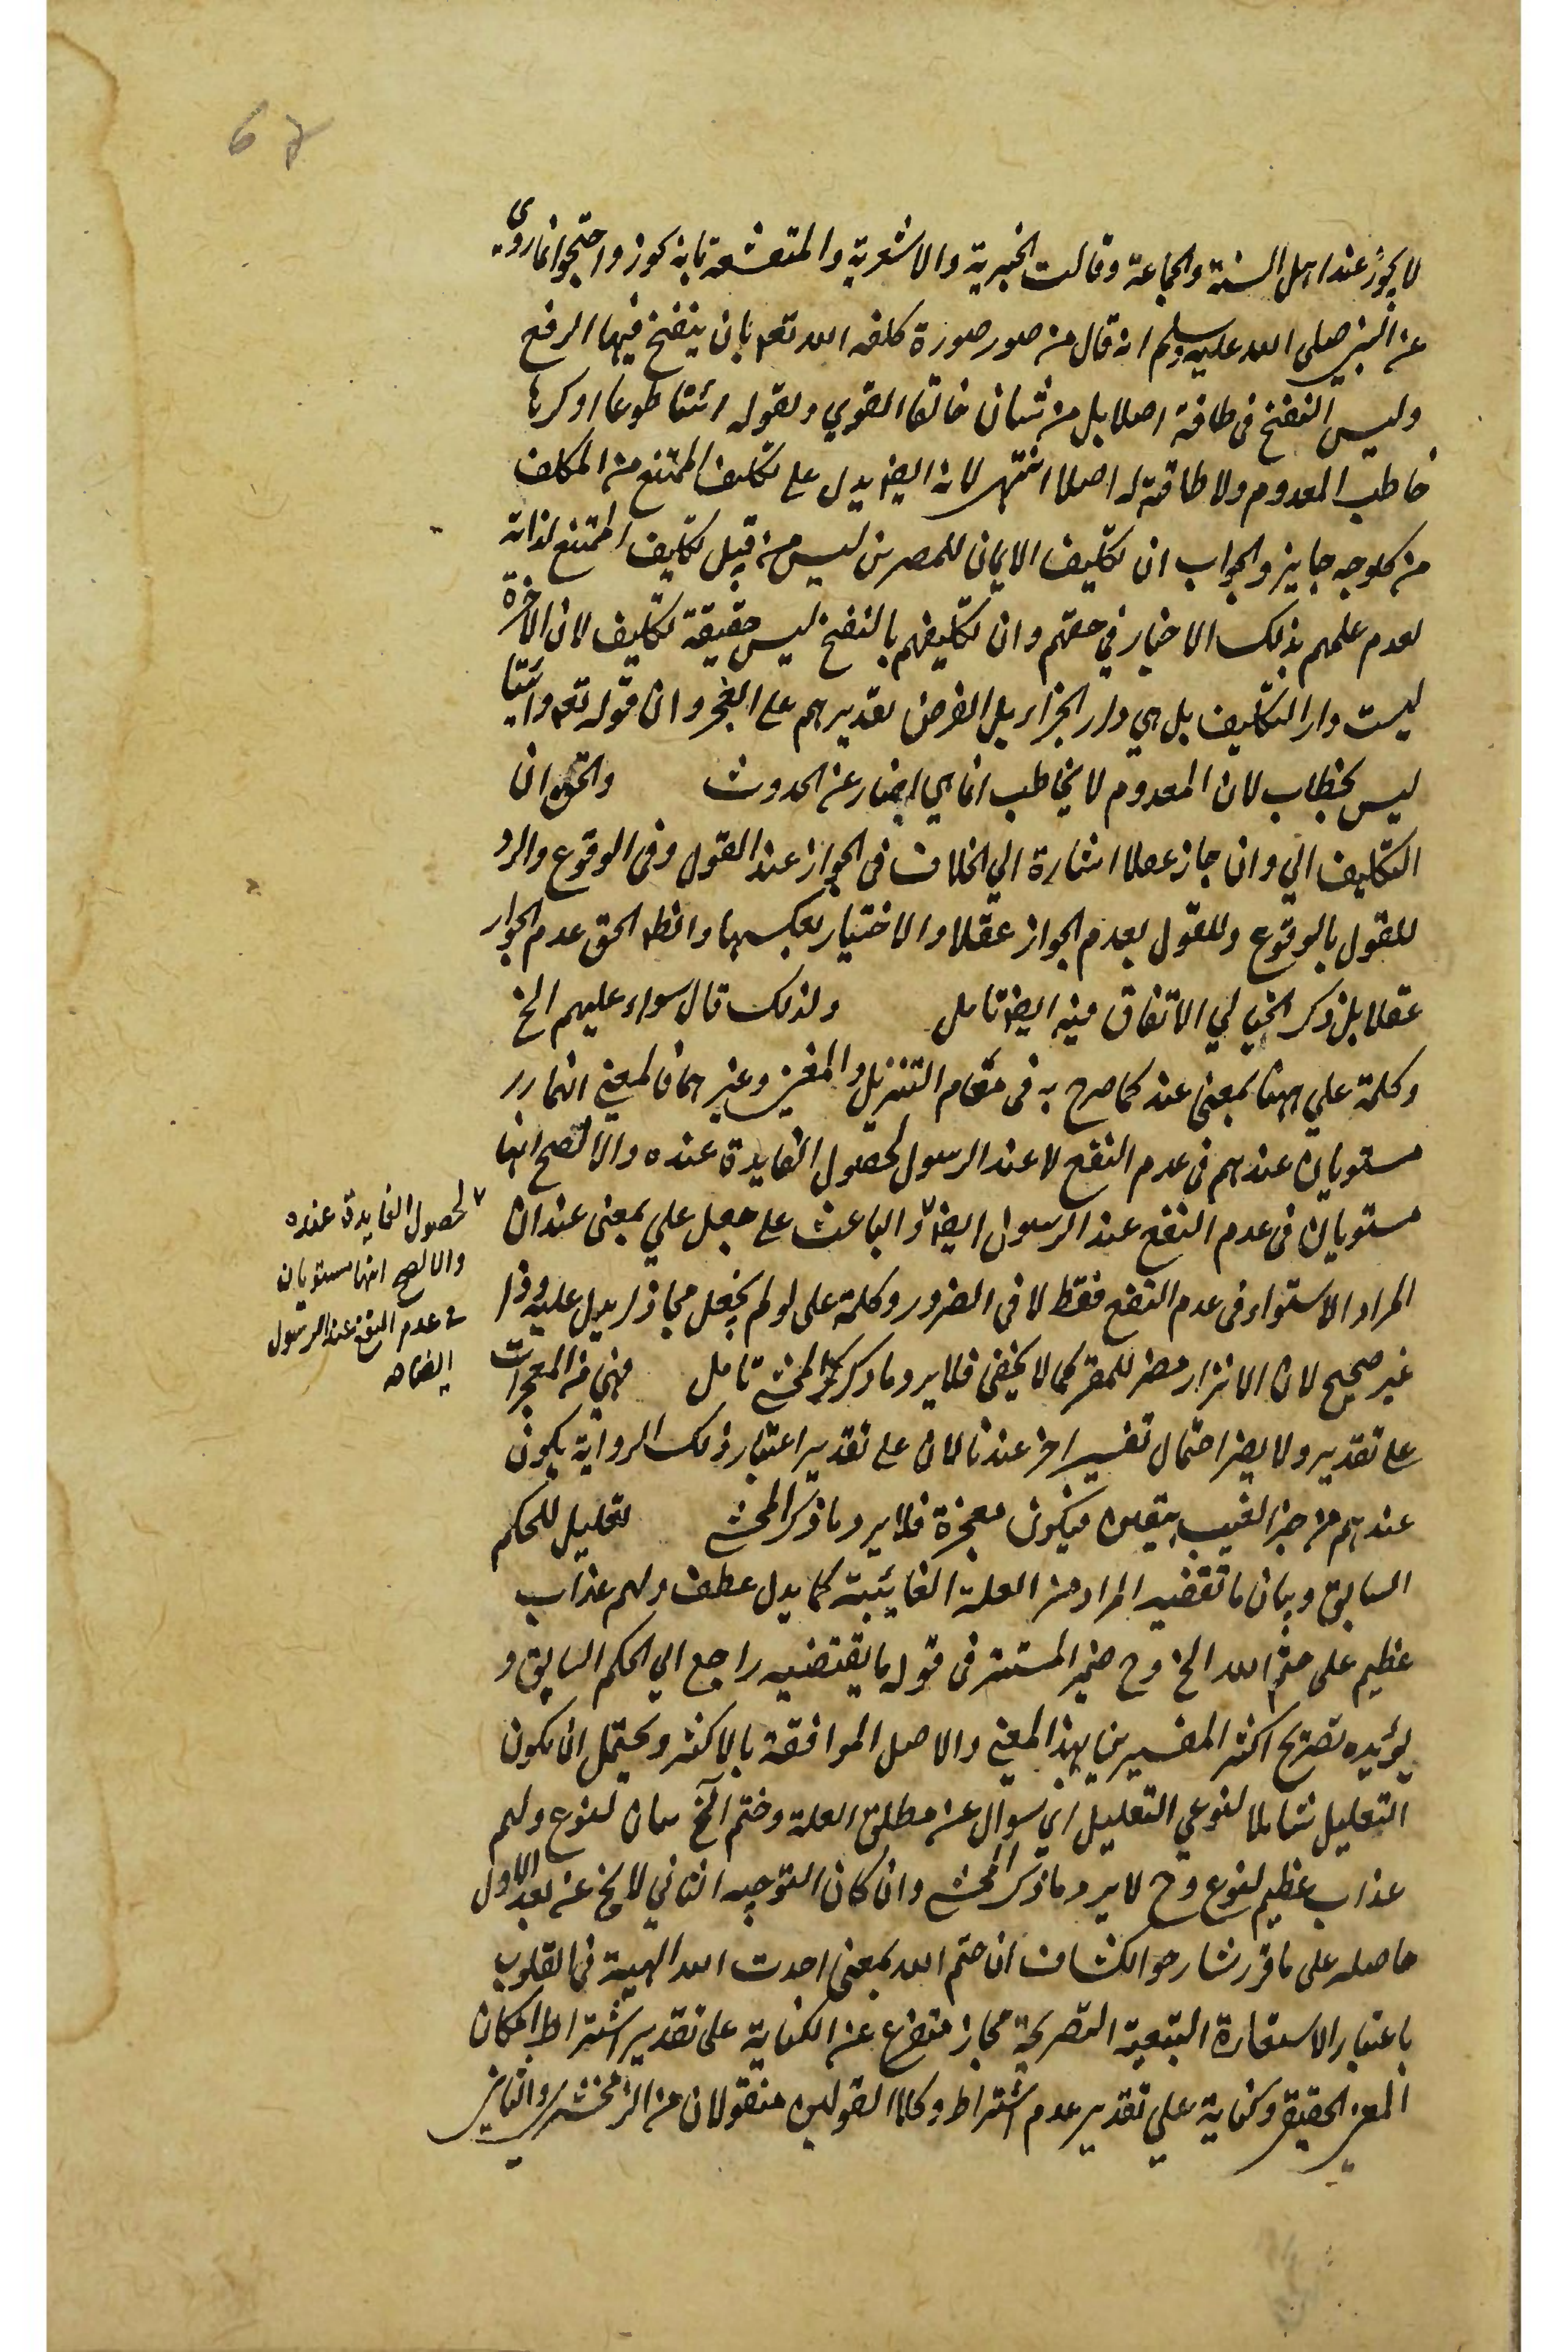 لا يجوز عند اهل السنة والجماعة وقالت الجبرية والاشعرية والمتقشعة بانه يجوز واحتجوا بما روي
عن النبي صلى الله عليه وسلم انه قال من صور صورة كلفه الله تعه بان ينفخ فيها الرفع
وليس النفخ في طاقة اصلا بل من شان خالق القوي وبقوله ائتيا طوعا او كرها
خاطب المعدوم ولا طاقة له اصلا انتهى لانه ايضا يدل على تكليف الممتنع من المكلف
من كل وجه جايز والجواب ان تكليف الايمان للمصرين ليس من قبيل تكليف الممتنع لذاته
لعدم علمهم بذلك الاخبار في حقهم وان تكليفهم بالنفخ ليس حقيقة تكليف لان الاخرة
ليست دار التكليف بل هي دار الجزاء بل الغرض تقديرهم على العجز وان قوله تعه وائتيا
ليس بخطاب لان المعدوم لا يخاطب انما هي اخبار عن الحدوث والحق ان
التكليف الي وان جاز عقلا اشارة الي الخلاف في الجواز عند القول وفي الوقوع والرد
للقول بالوقوع وللقول بعدم الجواز عقلا والاختيار بعكسهما وانظه الحق عدم الجواز
عقلا بل ذكر الخيالي الاتفاق فيه ايضا تامل ولذلك قال سواء عليهم الخ
وكلمة علي ههنا بمعنى عند كما صرح به في مقام التنزيل والمغني وغيرهما فالمعنى انهما رر
مستويان عندهم في عدم النفع لا عند الرسول لحصول الفايدة عنده والالصح انها
مستويان في عدم النفع عند الرسول ايضا والباعث على جعل علي بمعنى عند ان
المراد الاستواء في عدم النفع فقط لا في الضرور وكلمة على لو لم يجعل مجازا يدل عليه وذا
غير صحيح لان الانذار مضر للمقر كما لا يخفى فلا يرد ما ذكره المحشي تامل فهي من المعجزات
على تقدير ولا يضر احتمال تفسير اخر عندنا لان على تقدير اعتبار ذلك الرواية يكون
عندهم من خبر الغيب بيقين فيكون معجزة فلا يرد ما ذكر المحشي تعليل للحكم
السابق وبيان ما تقضيه المراد من العلة الغائية كما يدل عطف ولهم عذاب
عظيم على ختم الله الخ وح ضمير المستتر في قوله ما يقتضيه راجع الي الحكم السابق و
يؤيده تصريح اكثر المفسرين بهذا المعنى والاصل الموافقة بالاكثر ويحتمل ان يكون
التعليل شاملا لنوعي التعليل اي سوال عن مطلق العلة وختم الخ بيان لنوع ولهم
عذاب عظيم لنوع وح لا يرد ما ذكر المحشي وان كان التوجيه الثاني لا يخ عن بعد الاول
حاصله على ما قرر شارحو الكشاف ان ختم الله بمعنى احدث الله الهيئة في القلوب
باعتبار الاستعارة التبعية التصريحية مجاز متفرع عن الكناية على تقدير اشتراط امكان
المعنى الحقيقي وكناية على تقدير عدم اشتراط وكلا القولين منقولان من الزمخشري والثاني
لحصول الفايدة عنده
والالصح انها مستويان
في عدم النفع عند الرسول
ايضا صه